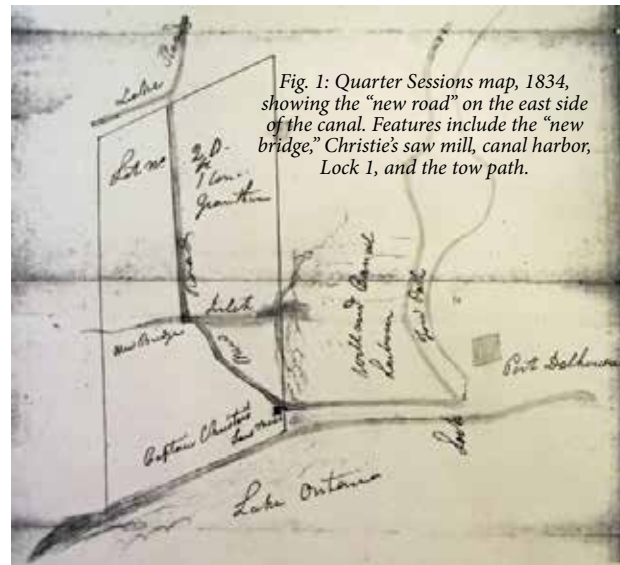 Road
Lake
Fig. 1: Quarter Sessions map, 1834,
showing the “new road” on the east side
of the canal. Features include the “new
bridge,” Christie’s saw mill, canal harbor,
Lock 1, and the tow path.
Lot No
1 Con.
Grantham
Road
Inlet
New Bridge
New
Welland Canal
Harbour
Tow Path
Port Dalhousie
Captain Christies
Saw Mill
Lock
Lake Ontario